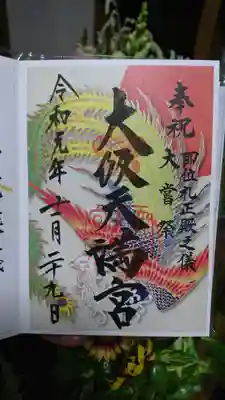 奉祝 即位礼正殿之儀
大嘗祭
大阪天満宮
令和元年 十一月 二十九日